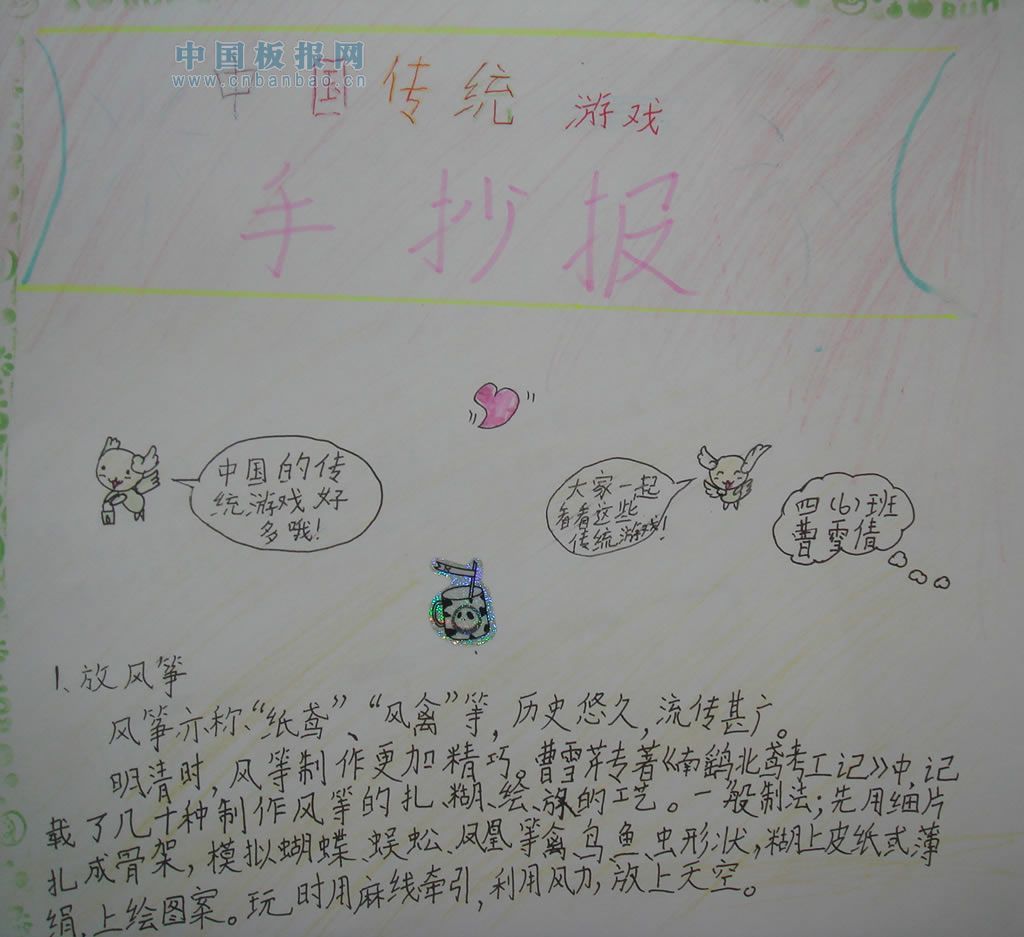 中国板报网
www.cnbanbao.cn
中国传统游戏
手抄报
中国的传
统游戏好
多哦!
大家一起
看看这些
传统游戏!
四(6)班
曹雪倩
1、放风筝
风筝亦称“纸鸢”、“风禽”等,历史悠久,流传甚广。
明清时,风筝制作更加精巧。曹雪芹专著《南鹞北鸢考工记》中,记
载了几十种制作风筝的扎、糊、绘、放的工艺。一般制法;先用细片
扎成骨架,模拟蝴蝶、蜈蚣、凤凰等禽、鸟、鱼、虫形状,糊上皮纸或薄
绢,上绘图案。玩时用麻线牵引,利用风力,放上天空。